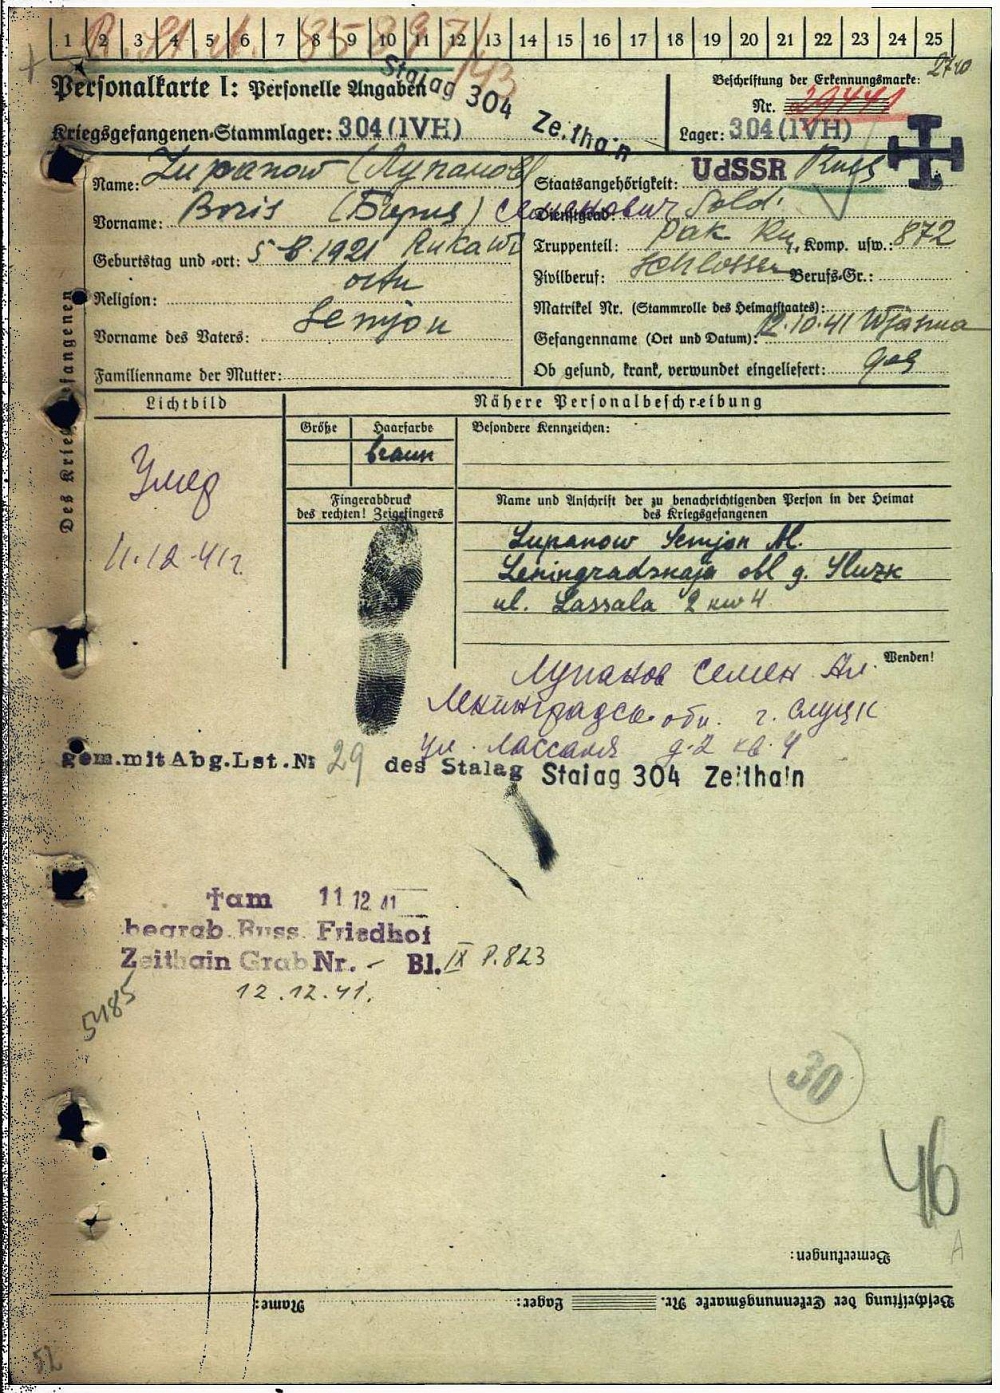 1 2 3 4 5 6 7 8 9 10 11 12 13 14 15 16 17 18 19 20 21 22 23 24 25
Personalkarte I: Personelle Angaben
Stalag 304 Zeithain
Beschriftung der Erkennungsmarke:
Nr. 29441
Kriegsgefangenen-Stammlager: 304 (IVH)
Lager: 304 (IVH)
Des Kriegsgefangenen
Name: Lupanow (Лупанов)
Vorname: Boris (Борис) Семенович
Geburtstag und -ort: 5.8.1921
Religion:
Vorname des Vaters: Semjon
Familienname der Mutter:
Staatsangehörigkeit: UdSSR Russ
Dienstgrad: Sold.
Truppenteil: Pak Komp. usw.: 872
Zivilberuf: Schlosser Berufs-Gr.:
Matrikel Nr. (Stammrolle des Heimatstaates):
Gefangennahme (Ort und Datum): 12.10.41 Wjasma
Ob gesund, krank, verwundet eingeliefert: ges
Lichtbild
Nähere Personalbeschreibung
Größe Haarfarbe Besondere Kennzeichen:
braun
Умер
11.12.41г.
Fingerabdruck
des rechten! Zeigefingers
Name und Anschrift der zu benachrichtigenden Person in der Heimat
des Kriegsgefangenen
Lupanow Semjon Al.
Leningradskaja obl g. Sluzk
ul. Lassala 2 kw 4
Wenden!
Лупанов Семен Ал.
Ленинградск. обл. г. Слуцк
ул. Лассаля д-2 кв. 4
gem.mit Abg.Lst.Nr 29 des Stalag Stalag 304 Zeithain
†am 11 12 41
begrab. Russ. Friedhof
Zeithain Grab Nr. - Bl. IX P. 823
12.12.41.
5185
30
46
A
Bemerkungen:
Beschriftung der Erkennungsmarke Nr. Lager: Name:
52